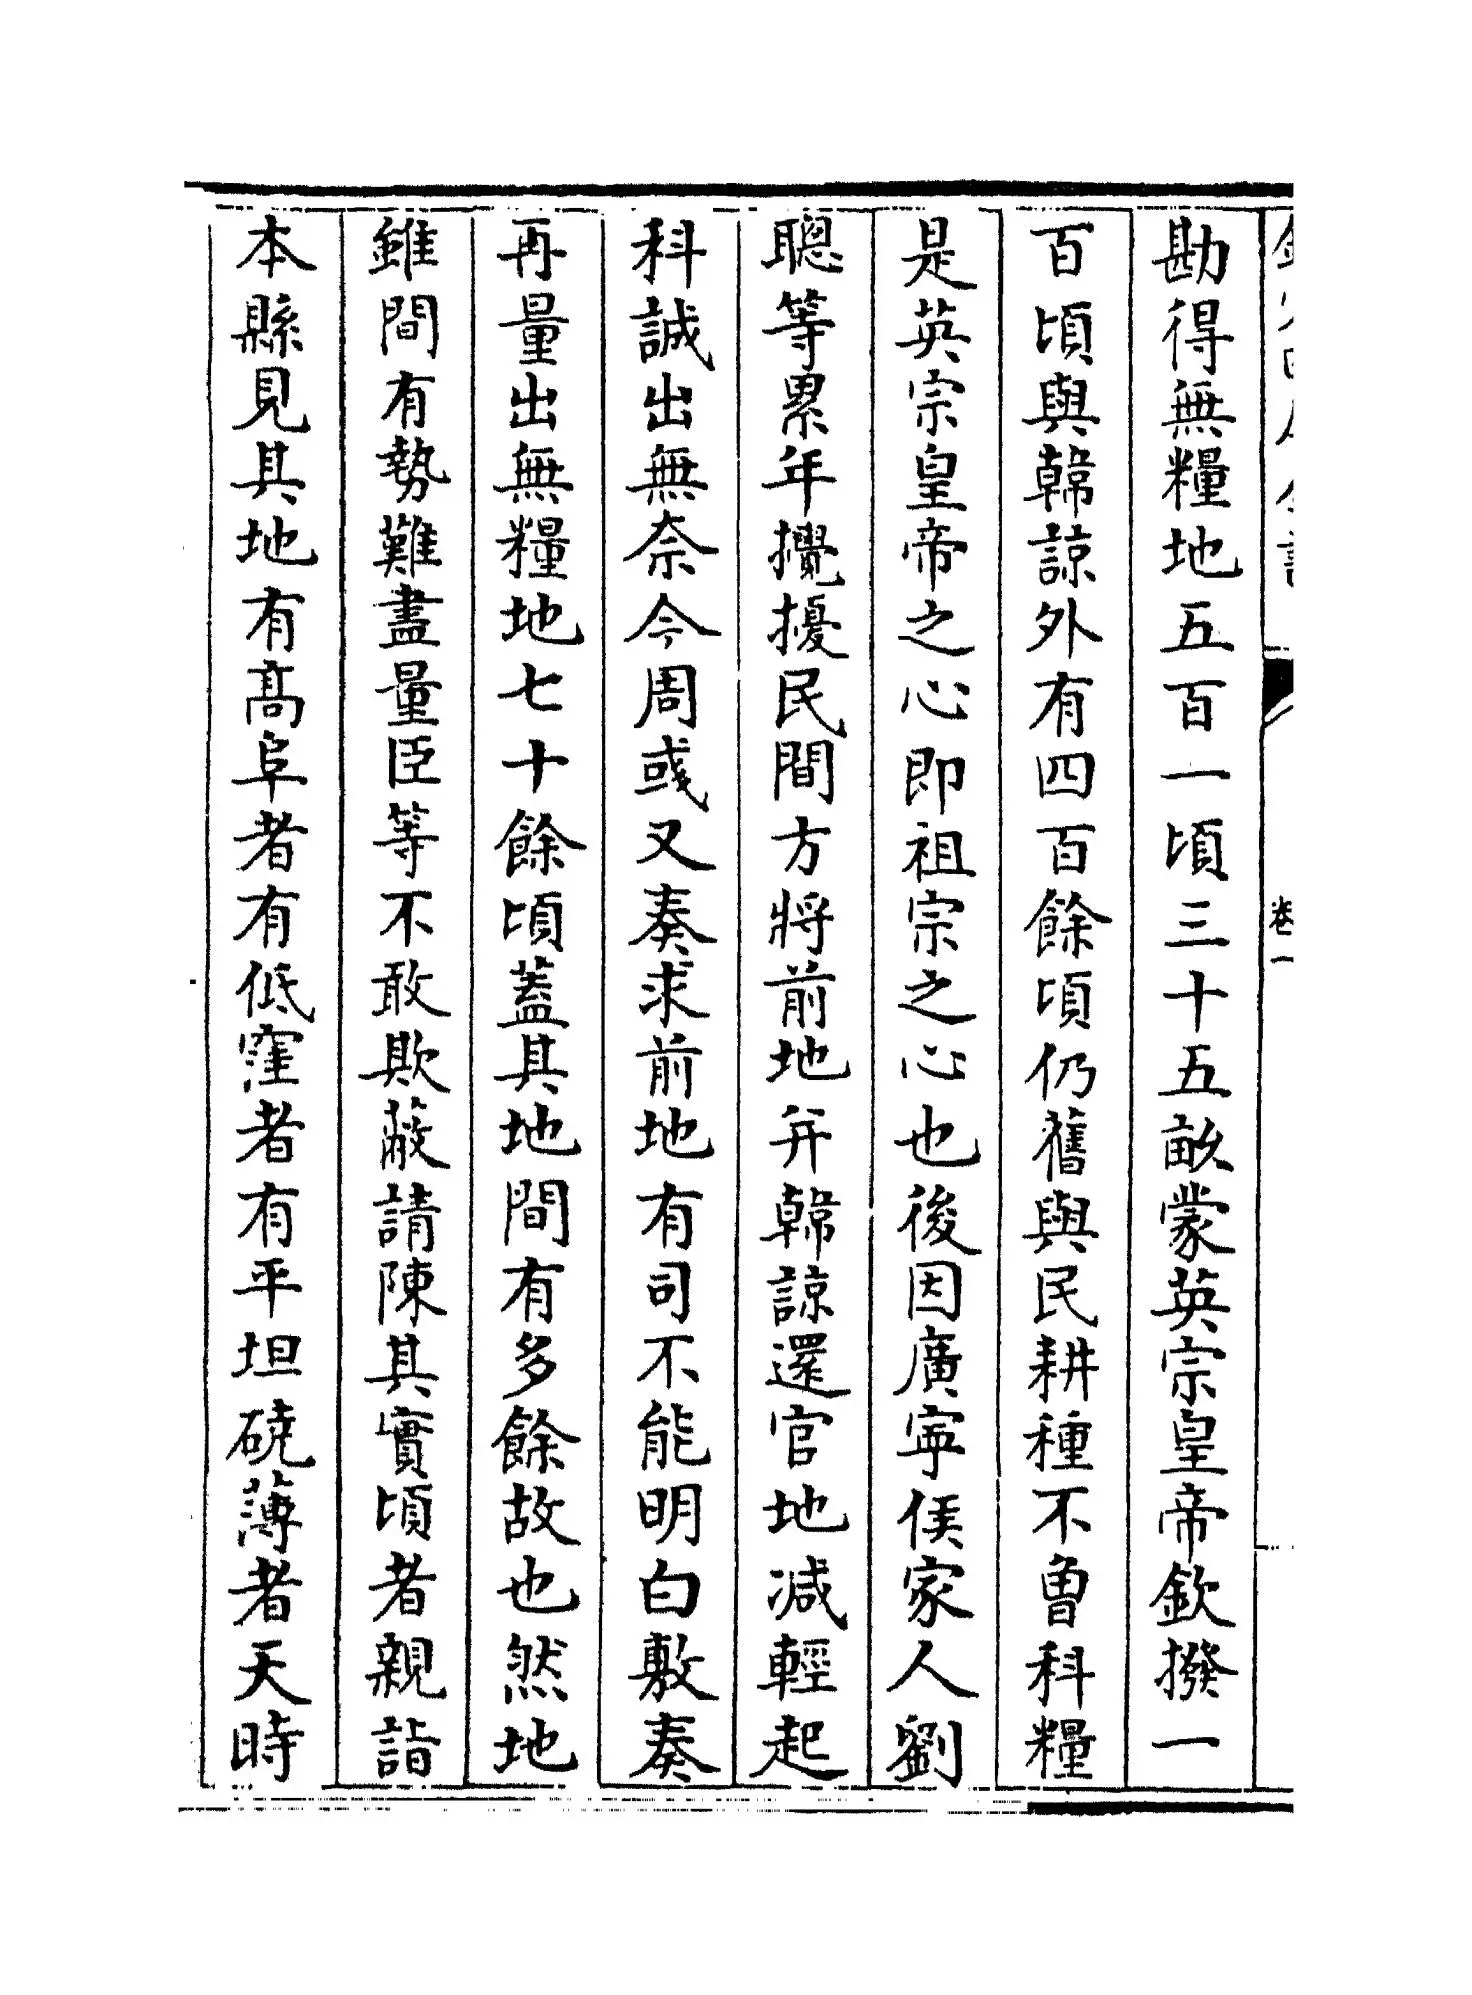 勘得無糧地五百一頃三十五畝蒙英宗皇帝欽撥一
百頃與韓諒外有四百餘頃仍舊與民耕種不曾科糧
是英宗皇帝之心即祖宗之心也後因廣寧侯家人劉
聰等累年攪擾民間方將前地并韓諒還官地减輕起
科誠出無奈今周彧又奏求前地有司不能明白敷奏
再量出無糧地七十餘頃蓋其地間有多餘故也然地
雖間有勢難盡量臣等不敢欺蔽請陳其實頃者親詣
本縣見其地有髙阜者有低窪者有平坦磽薄者天時
卷一